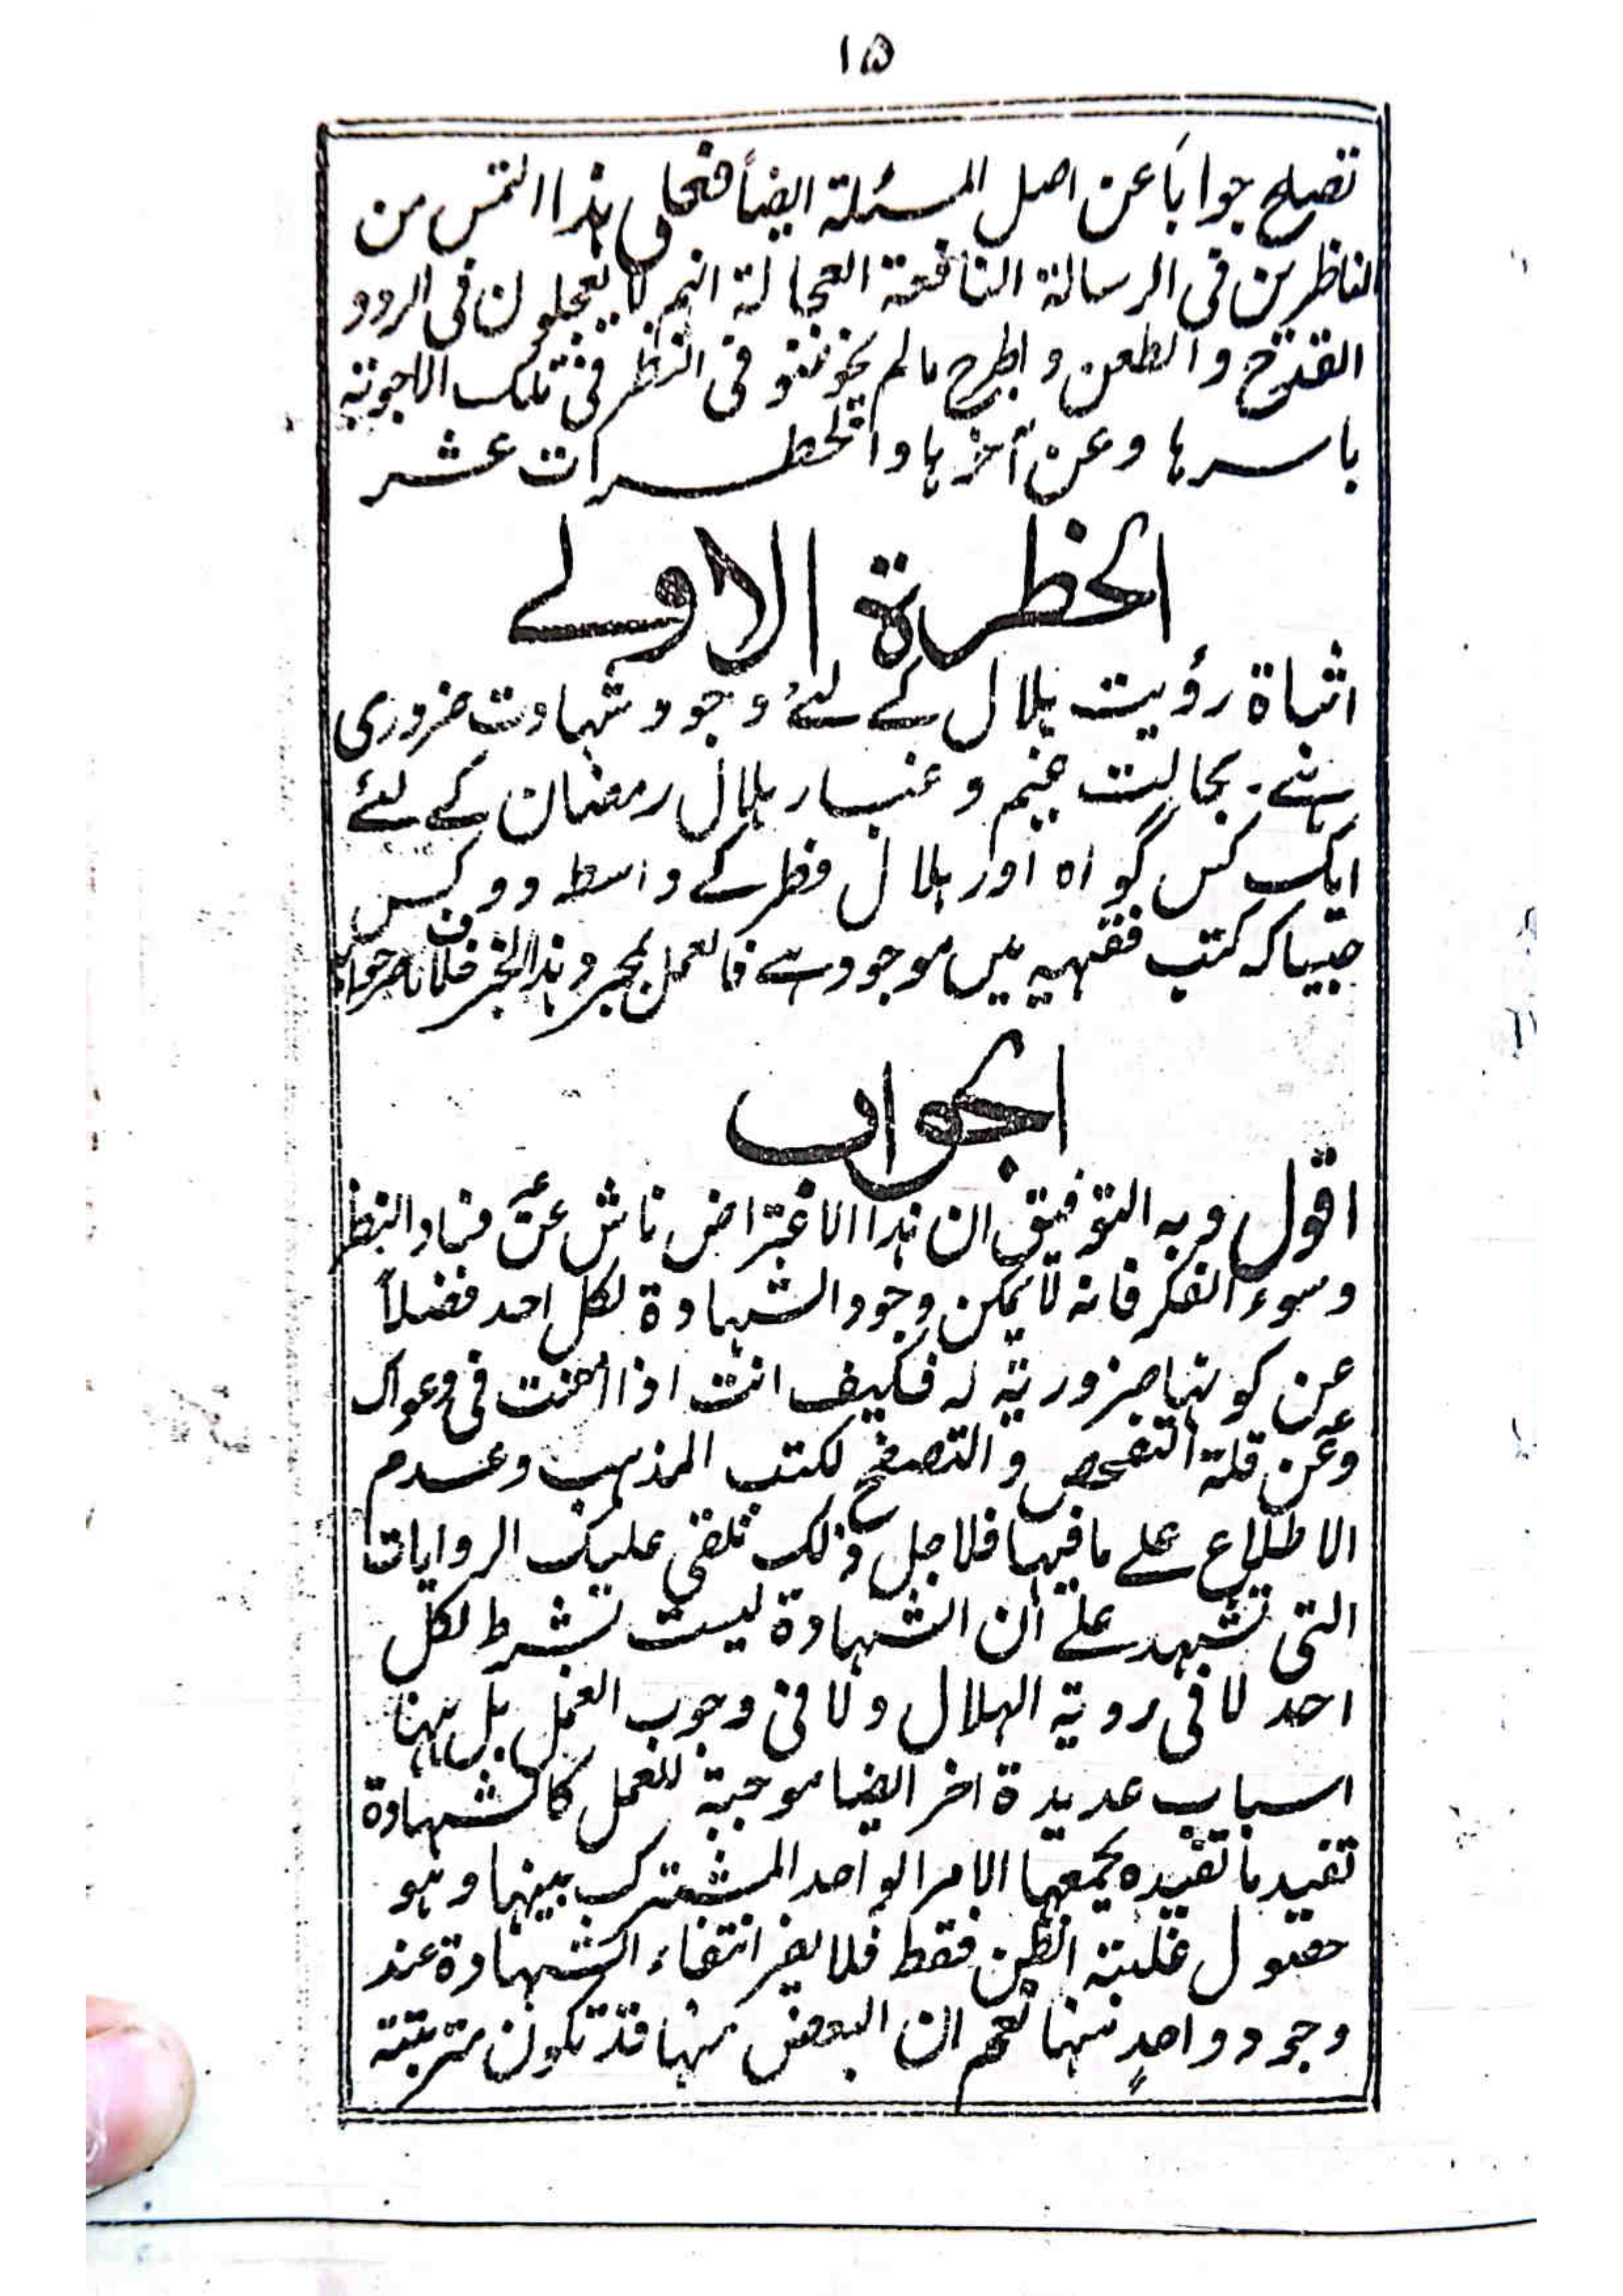 ۱۵
تصلح جواباً عن اصل المسئلة ایضاً فحان ہذا التمس من
الناظرین فی الرسالة النافعة العجالة انهم لا یعجلون فی الرد و
القدح والطعن و الطرح مالم یخوضوا فی النظر فی تلک الاجوبة
باسرها و عن آخرها و الخطرات عشر
الخطرة الاولے
اثباة رؤیت ہلال کے لئے وجود شہادت ضروری
ہے۔ بحالت غیم و غبار ہلال رمضان کے لئے
ایک کس گواہ اور ہلال فطر کے واسطہ دو کس
جیسا کہ کتب فقہیہ میں موجود ہے فالعمل بمجرد ہذا الخبر خلاف
الجواب
اقول و به التوفیق ان ہذا الاعتراض ناش عن فساد النظر
وسوء الفکر فانه لا یمکن وجود الشهادة لکل احد فضلاً
عن کونها ضروریة له فکیف انت اذا امعنت فی دعواک
وعن قلة التفحص و التصفح لکتب المذهب وعدم
الاطلاع علے ما فیها فلاجل ذلک نلقی علیک الروایات
التی تشهد علے ان الشهادة لیست تشرط لکل
احد لا فی رویة الهلال ولا فی وجوب العمل بل ههنا
اسباب عدیدة اخر ایضا موجبة للعمل کالشهادة
تفید ما تفیده یجمعها الامر الواحد المشترک بینها و هو
حصول غلبة الظن فقط فلا یضر انتفاء الشهادة عند
وجود واحدٍ منها نعم ان البعض منها قد تکون مترتبة